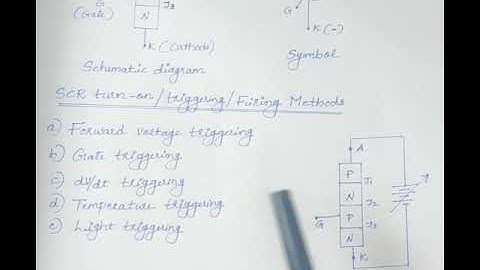 G
(Gate)
N
J3
K (Cathode)
Schematic diagram
G
K(-)
Symbol
SCR turn-on/triggering/Firing Methods
a) Forward voltage triggering
b) Gate triggering
c) dv/dt triggering
d) Temperature triggering
e) Light triggering
A
P
J1
N
J2
G
P
J3
N
K